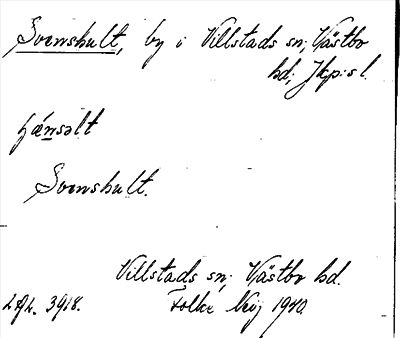 Svenshult, by i Villstads sn; Västbo
hd; Jkp:s l.
Svenshult.
Villstads sn; Västbo hd.
3918. Folke 1940.